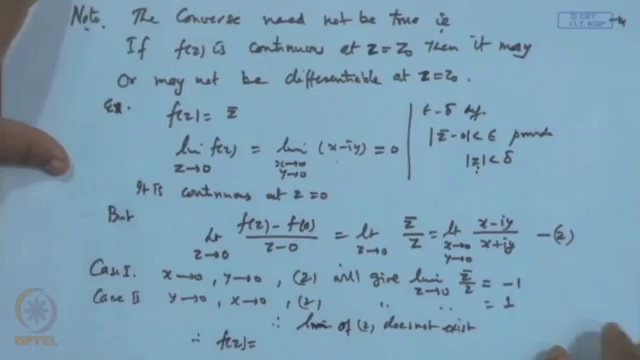 Note. The Converse need not be true ie
© CET
I.I.T. KGP
If f(z) is continuous at z = z₀ then it may
or may not be differentiable at z = z₀.
Ex. f(z) = z̄
ε-δ def.
lim z→0 f(z) = lim x→0 y→0 (x-iy) = 0
|z̄ - 0| < ε provide
|z| < δ
It is continuous at z = 0
But lt z→0 f(z) - f(0) / z - 0 = lt z→0 z̄/z = lt x→0 y→0 x-iy / x+iy —(2)
Case I. x→0, y→0, (2) will give lim z→0 z̄/z = -1
Case II y→0, x→0, (2) " " = 1
∴ limit of (2) does not exist
∴ f(z) =
NPTEL